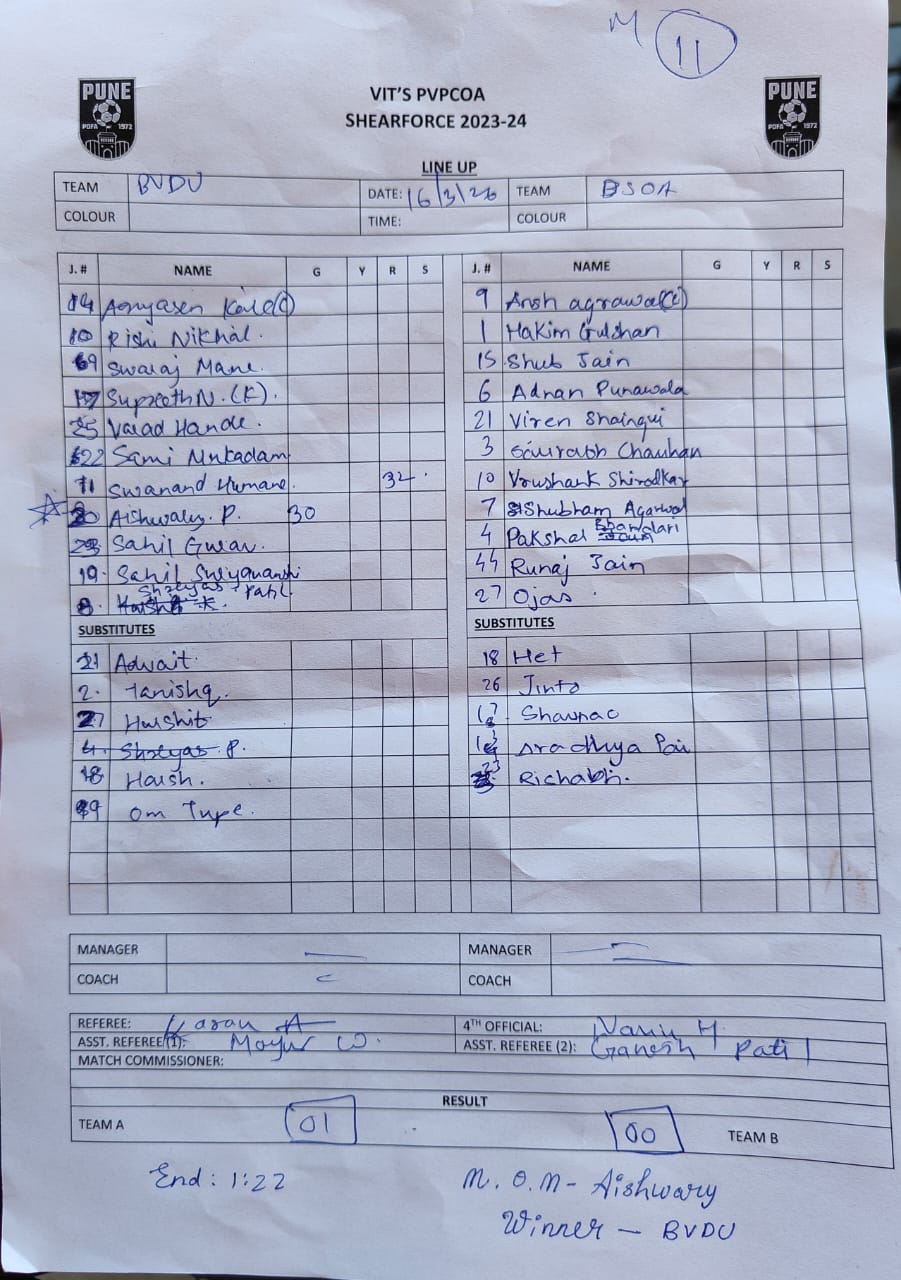 M 11
PUNE
PDFA 1972
VIT'S PVPCOA
SHEARFORCE 2023-24
PUNE
PDFA 1972
LINE UP
TEAM BVDU DATE: 16/3/26 TEAM BSOA
COLOUR TIME: COLOUR
J. # NAME G Y R S J. # NAME G Y R S
14 Agnyasen Kale(C) 9 Ansh agrawal(C)
10 Rishi Nikhal. 1 Hakim Gulshan
69 Swaraj Mane. 15 Shub Jain
17 Supreeth N. (K). 6 Adnan Punawala
25 Varad Handе. 21 Viren
22 Sami Mukadam 3 Saurabh Chauhan
11 Swanand Humane. 32. 10 Vrushank Shirodkar
20 Aishwary. P. 30 7 Shubham Agarwal
23 Sahil Gurav. 4 Pakshal Bhandari
19. Sahil Suryavanshi 44 Runaj Jain
8. Shreyas Patil 27 Ojas
SUBSTITUTES SUBSTITUTES
21 Adwait. 18 Het
2. Tanishq. 26 Jinto
27 Harshit 17 Shaunac
4. Shreyas P. Aradhya Pai
18 Harsh. 23 Richabh.
99 Om Tupe.
MANAGER MANAGER
COACH COACH
REFEREE: Karan A 4TH OFFICIAL:
ASST. REFEREE(1): Mayur W. ASST. REFEREE (2): Ganesh Patil
MATCH COMMISSIONER:
RESULT
TEAM A 01 00 TEAM B
End: 1:22 M. O. M - Aishwary
Winner - BVDU